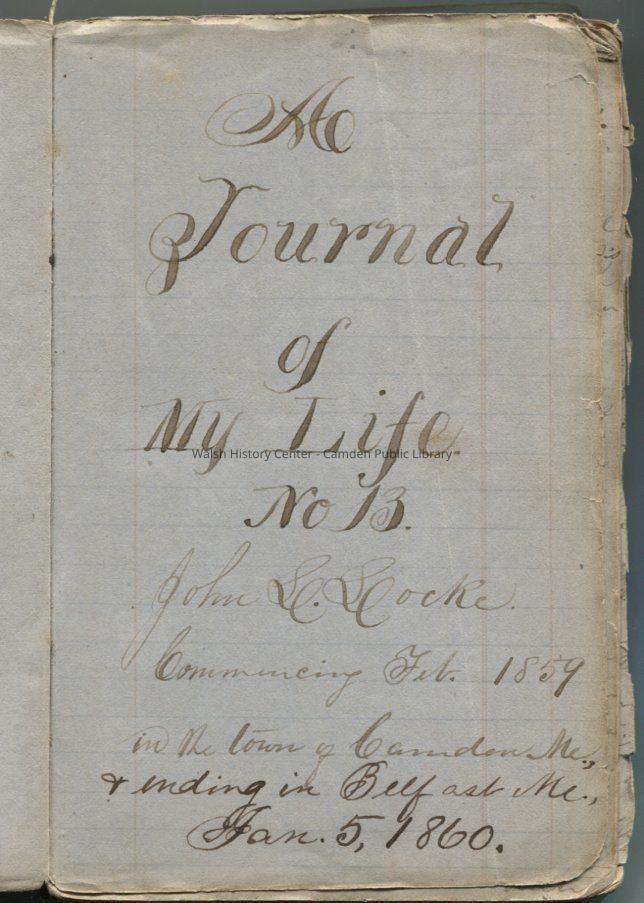 A
Journal
of
My Life
Walsh History Center - Camden Public Library
No 13.
John L. Locke.
Commencing Feb. 1859
in the town of Camden Me.,
& ending in Belfast Me.,
Jan. 5, 1860.